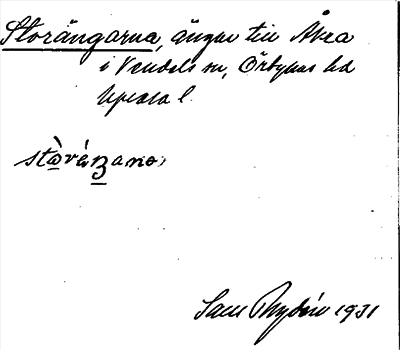 Storängarna, ängar till Åkra
i Vendels sn, Örbyhus hd
Uppsala l.
stòrǽŋana
Sam Rydén 1931